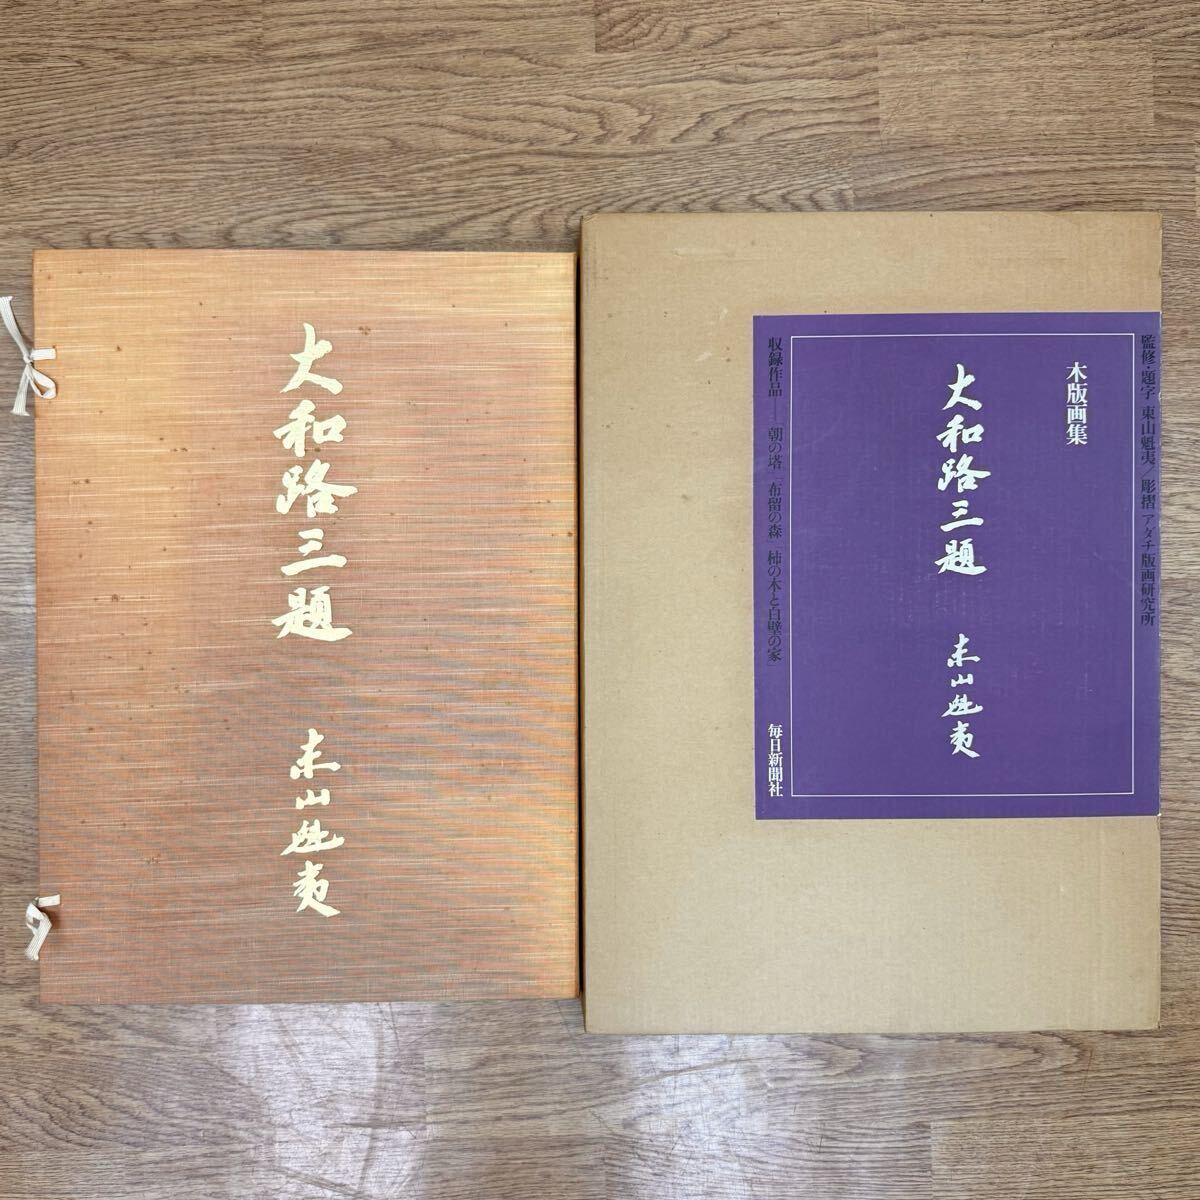 大和路三題
東山魁夷
監修・題字 東山魁夷／彫摺 アダチ版画研究所
木版画集
大和路三題
東山魁夷
収録作品──「朝の塔」「布留の森」「柿の木と白壁の家」
毎日新聞社